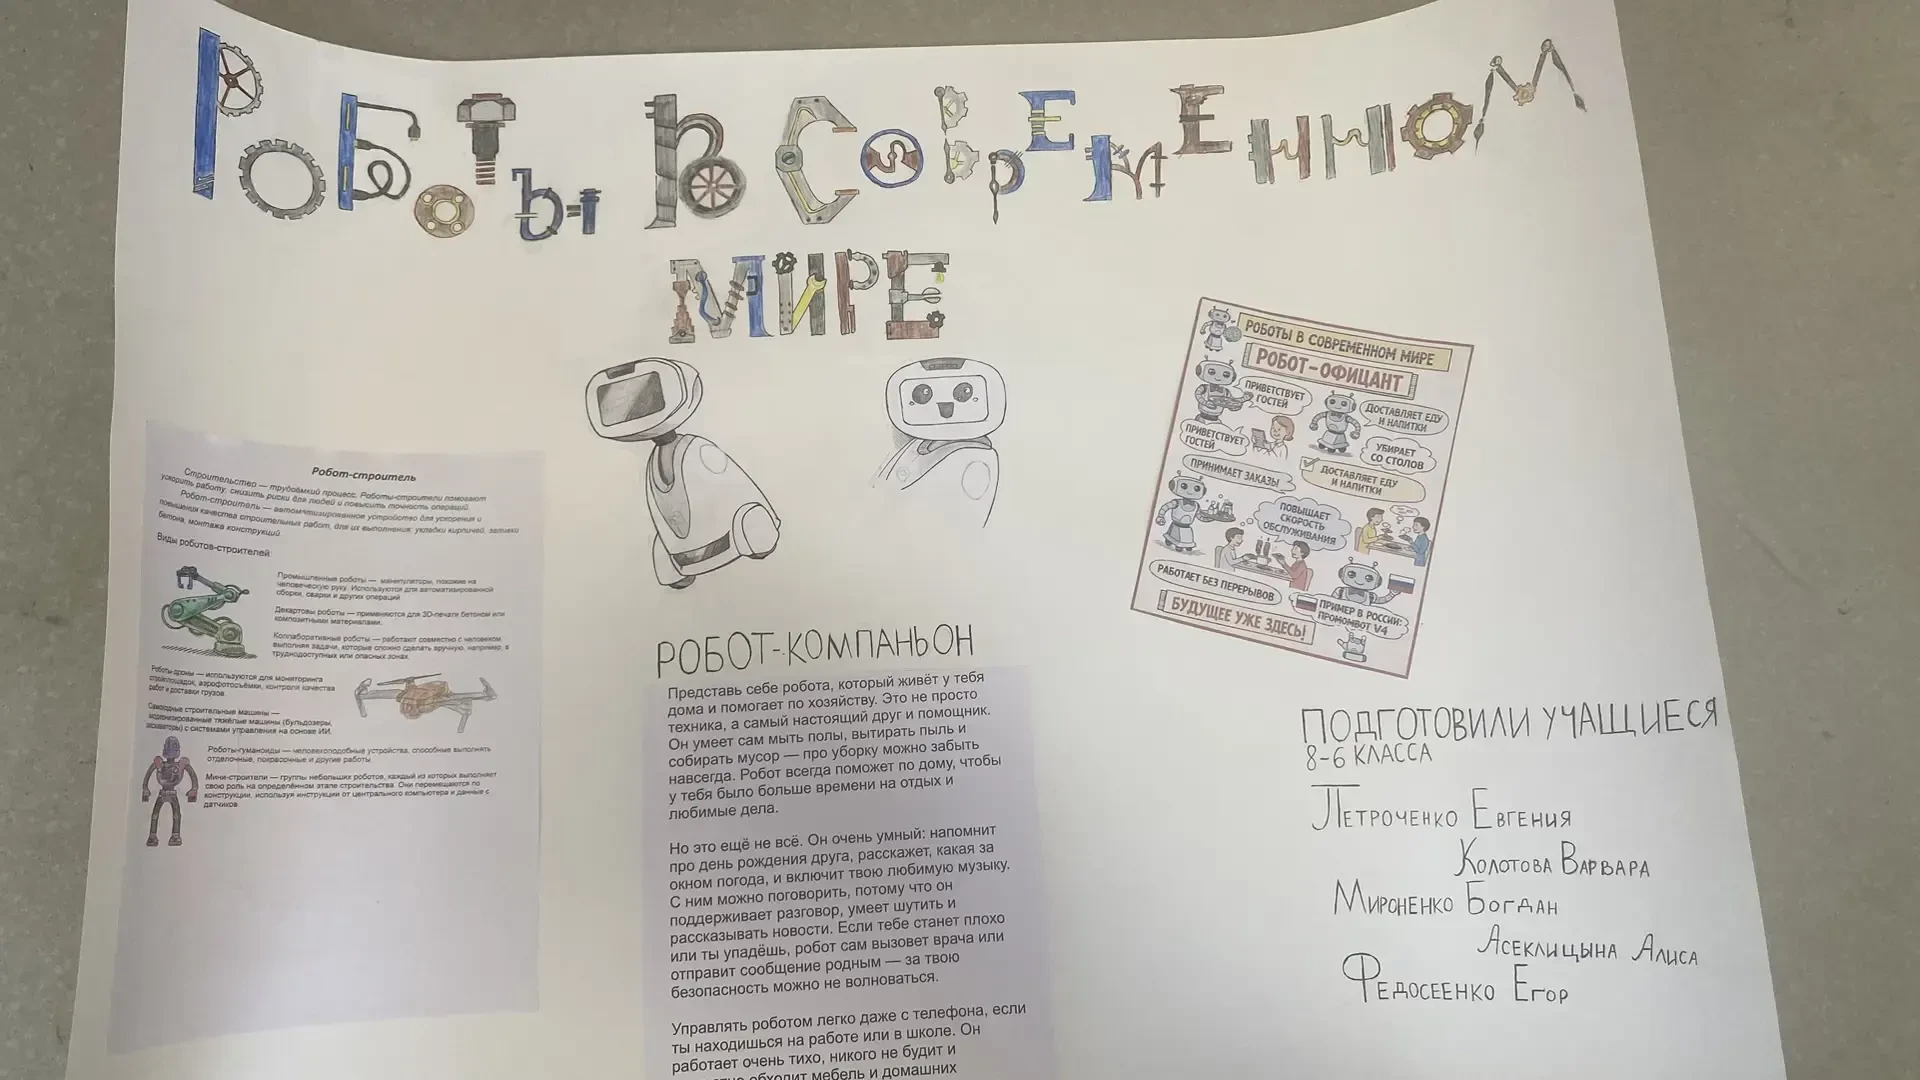 Роботы в современном
мире
Робот-строитель
Строительство — трудоёмкий процесс. Роботы-строители помогают
ускорить работу, снизить риски для людей и повысить точность операций.
Робот-строитель — автоматизированное устройство для ускорения и
повышения качества строительных работ, для их выполнения: укладки кирпичей, заливки
бетона, монтажа конструкций
Виды роботов-строителей
Промышленные роботы — манипуляторы, похожие на
человеческую руку. Используются для автоматизированной
сборки, сварки и других операций
Декартовы роботы — применяются для 3D-печати бетоном или
композитными материалами.
Коллаборативные роботы — работают совместно с человеком
выполняя задачи, которые сложно сделать вручную, например, в
труднодоступных или опасных зонах.
Роботы-дроны — используются для мониторинга
стройплощадок, аэрофотосъёмки, контроля качества
работ и доставки грузов.
Самоходные строительные машины —
модернизированные тяжёлые машины (бульдозеры,
экскаваторы) с системами управления на основе ИИ.
Роботы-гуманоиды — человекоподобные устройства, способные выполнять
отделочные, покрасочные и другие работы
Мини-строители — группы небольших роботов, каждый из которых выполняет
свою роль на определённом этапе строительства. Они перемещаются по
конструкции, используя инструкции от центрального компьютера и данные с
датчиков.
РОБОТ-КОМПАНЬОН
Представь себе робота, который живёт у тебя
дома и помогает по хозяйству. Это не просто
техника, а самый настоящий друг и помощник.
Он умеет сам мыть полы, вытирать пыль и
собирать мусор — про уборку можно забыть
навсегда. Робот всегда поможет по дому, чтобы
у тебя было больше времени на отдых и
любимые дела.
Но это ещё не всё. Он очень умный: напомнит
про день рождения друга, расскажет, какая за
окном погода, и включит твою любимую музыку.
С ним можно поговорить, потому что он
поддерживает разговор, умеет шутить и
рассказывать новости. Если тебе станет плохо
или ты упадёшь, робот сам вызовет врача или
отправит сообщение родным — за твою
безопасность можно не волноваться.
Управлять роботом легко даже с телефона, если
ты находишься на работе или в школе. Он
работает очень тихо, никого не будит и
обходит мебель и домашних
РОБОТЫ В СОВРЕМЕННОМ МИРЕ
РОБОТ-ОФИЦАНТ
ПРИВЕТСТВУЕТ
ГОСТЕЙ
ДОСТАВЛЯЕТ ЕДУ
И НАПИТКИ
ПРИВЕТСТВУЕТ
ГОСТЕЙ
УБИРАЕТ
СО СТОЛОВ
ПРИНИМАЕТ ЗАКАЗЫ
ДОСТАВЛЯЕТ ЕДУ
И НАПИТКИ
ПОВЫШАЕТ
СКОРОСТЬ
ОБСЛУЖИВАНИЯ
РАБОТАЕТ БЕЗ ПЕРЕРЫВОВ
ПРИМЕР В РОССИИ:
ПРОМОМВОТ V4
БУДУЩЕЕ УЖЕ ЗДЕСЬ!
ПОДГОТОВИЛИ УЧАЩИЕСЯ
8-6 КЛАССА
ПЕТРОЧЕНКО ЕВГЕНИЯ
КОЛОТОВА ВАРВАРА
МИРОНЕНКО БОГДАН
АСЕКЛИЦЫНА АЛИСА
ФЕДОСЕЕНКО ЕГОР